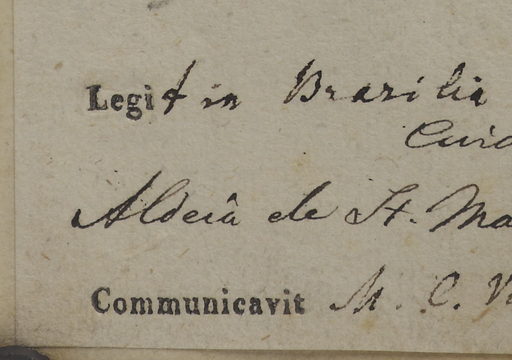 Legit in Brazilia
Aldeia de St.
Communicavit M. C.